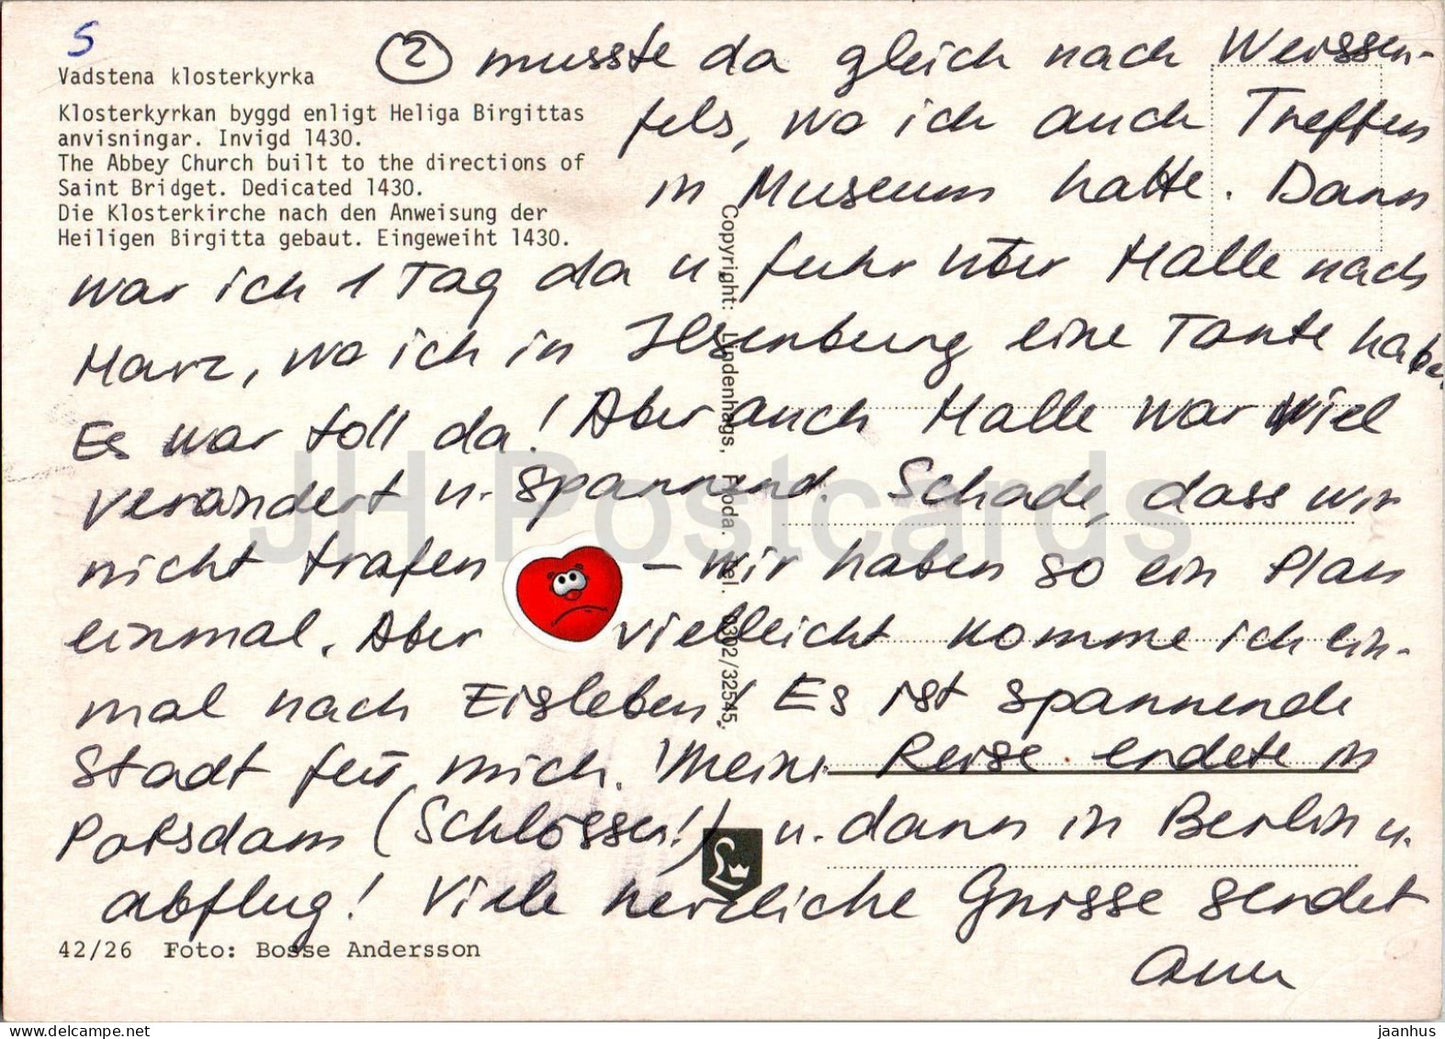 S
Vadstena klosterkyrka
Klosterkyrkan byggd enligt Heliga Birgittas
anvisningar. Invigd 1430.
The Abbey Church built to the directions of
Saint Bridget. Dedicated 1430.
Die Klosterkirche nach den Anweisung der
Heiligen Birgitta gebaut. Eingeweiht 1430.
2 musste da gleich nach Weissen-
fels, wo ich auch Treffen
in Museum hatte. Dann
war ich 1 Tag da u fuhr über Halle nach
Harz, wo ich in Ilsenburg eine Tante habe.
Es war toll da! Aber auch Halle war viel
verändert u. spannend. Schade, dass wir
nicht trafen – wir haben so ein Plan
einmal. Aber vielleicht komme ich ein-
mal nach Eisleben! Es ist spannende
Stadt für mich. Meine Reise endete in
Potsdam (Schlösser!) u. dann in Berlin u.
abflug! Viele herzliche Grüsse sendet
42/26 Foto: Bosse Andersson
Copyright: Lindenhags, Floda. Tel. 0302/32545.
JH Postcards
jaanhus